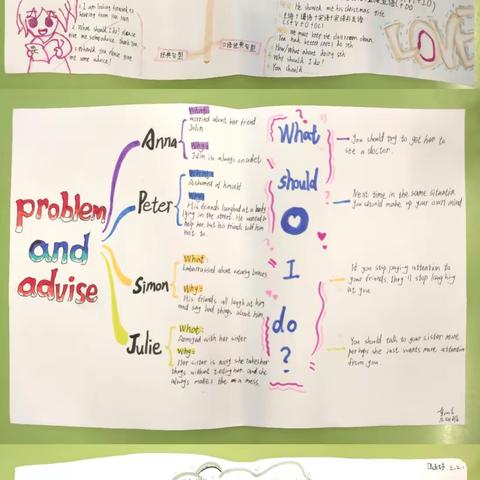 1. I am looking forward to
hearing from you soon
2. What should I do? Please
give me some advice. Thank you
3. Would you please give
me some advice!
经典句型
He showed me his christmas gift
主语+谓语+宾语+宾语补足语
(S+V+O+OC)
We must keep the classroom clean.
You had better (not) do sth
How/What about doing sth
Why should I do?
You should
LOVE
problem
and
advise
Anna
What:
worried about her friend
Julin
Why:
Julin is always on a diet
Peter
What:
Ashamed of himself
Why:
His friends laughed at a lady
lying in the street. He wanted to
help her, but his friends told him
not to.
Simon
What:
Embarrassed about nearly bones
Why:
His friends all laugh at him
and say bad things about him
Julie
What:
Annoyed with her sister
Why:
Her sister is nosy she takes her
things without telling her. and she
always makes the a mess.
What
should
I
do
?
You should try to get her to
see a doctor.
Next time in the same situation
You should make up your own mind
If you stop paying attention to
your friends, they'll stop laughing
at you
You should talk to your sister more
perhaps she just wants more attention
from you.